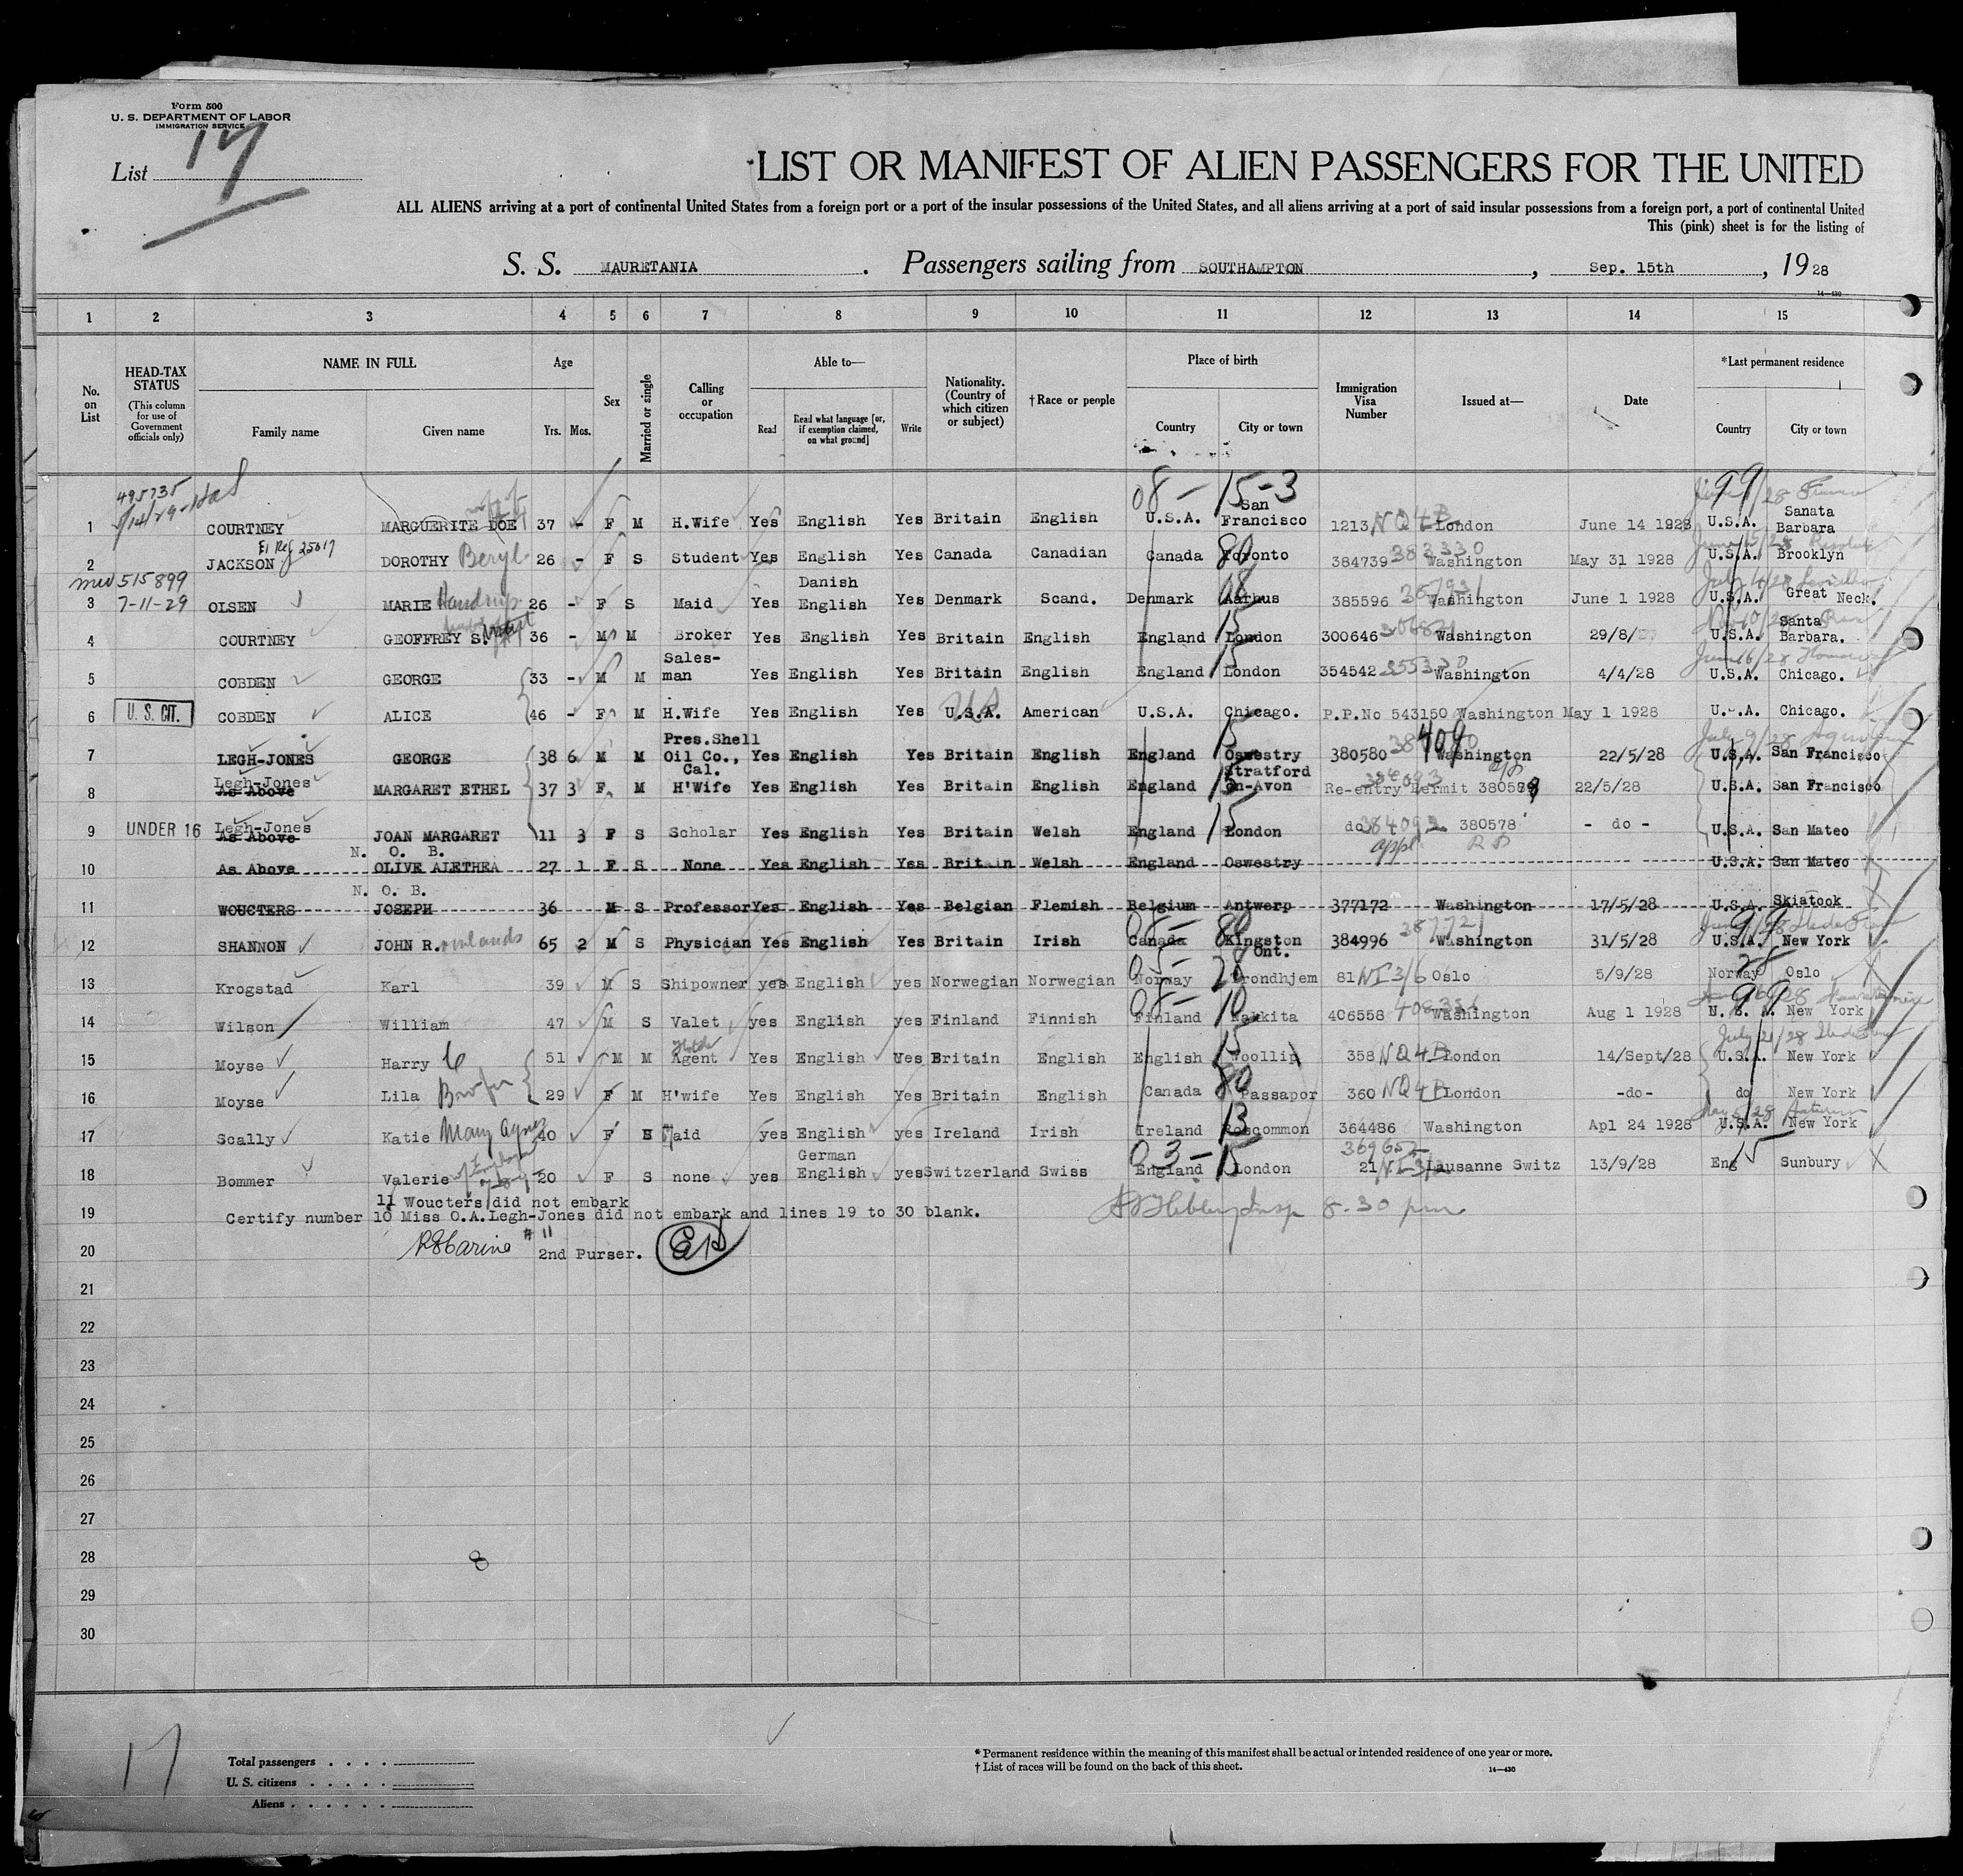 Form 500
U. S. DEPARTMENT OF LABOR
IMMIGRATION SERVICE
List 17
LIST OR MANIFEST OF ALIEN PASSENGERS FOR THE UNITED
ALL ALIENS arriving at a port of continental United States from a foreign port or a port of the insular possessions of the United States, and all aliens arriving at a port of said insular possessions from a foreign port, a port of continental United
This (pink) sheet is for the listing of
S. S. MAURETANIA. Passengers sailing from SOUTHAMPTON, Sep. 15th, 1928
14—430
1 2 3 4 5 6 7 8 9 10 11 12 13 14 15
No. on List
HEAD-TAX STATUS (This column for use of Government officials only)
NAME IN FULL
Family name Given name
Age Yrs. Mos.
Sex
Married or single
Calling or occupation
Able to—
Read Read what language [or, if exemption claimed, on what ground] Write
Nationality. (Country of which citizen or subject)
†Race or people
Place of birth
Country City or town
Immigration Visa Number
Issued at—
Date
*Last permanent residence
Country City or town
495735
08 - 15-3 99
1 COURTNEY MARGUERITE DOE 37 - F M H.Wife Yes English Yes Britain English U.S.A. San Francisco 1213 NQ4B London June 14 1928 U.S.A. Sanata Barbara
2 JACKSON DOROTHY Beryl 26 - F S Student Yes English Yes Canada Canadian Canada 80 Toronto 384739 382330 Washington May 31 1928 U.S.A. Brooklyn
515899
7-11-29
3 OLSEN MARIE 26 - F S Maid Yes Danish English Yes Denmark Scand. Denmark Aarhus 385596 Washington June 1 1928 U.S.A. Great Neck.
4 COURTNEY GEOFFREY S. 36 - M M Broker Yes English Yes Britain English England 15 London 300646 Washington 29/8/ U.S.A. Santa Barbara.
5 COBDEN GEORGE 33 - M M Sales-man Yes English Yes Britain English England 15 London 354542 Washington 4/4/28 U.S.A. Chicago.
6 U. S. CIT. COBDEN ALICE 46 - F M H.Wife Yes English Yes U.S.A. American U.S.A. Chicago. P.P.No 543150 Washington May 1 1928 U.S.A. Chicago.
7 LEGH-JONES GEORGE 38 6 M M Pres.Shell Oil Co., Cal. Yes English Yes Britain English England 15 Oswestry 380580 Washington 22/5/28 U.S.A. San Francisco
8 Legh-Jones As Above MARGARET ETHEL 37 3 F M H'Wife Yes English Yes Britain English England 15 Stratford on-Avon 384093 Re-entry Permit 22/5/28 U.S.A. San Francisco
9 UNDER 16 Legh-Jones As Above JOAN MARGARET 11 3 F S Scholar Yes English Yes Britain Welsh England 15 London do 384092 380578 - do - U.S.A. San Mateo
N. O. B.
10 As Above OLIVE ALETHEA 27 1 F S None Yes English Yes Britain Welsh England Oswestry U.S.A. San Mateo
N. O. B.
11 WOUCTERS JOSEPH 36 M S Professor Yes English Yes Belgian Flemish Belgium Antwerp 377172 Washington 17/5/28 U.S.A. Skiatook
12 SHANNON JOHN R. 65 2 M S Physician Yes English Yes Britain Irish Canada 80 Kingston Ont. 384996 Washington 31/5/28 U.S.A. New York
13 Krogstad Karl 39 M S Shipowner yes English yes Norwegian Norwegian Norway Trondhjem 81 NI 3/6 Oslo 5/9/28 Norway Oslo
14 Wilson William 47 M S Valet yes English yes Finland Finnish Finland 10 Nakkita 406558 Washington Aug 1 1928 N. S. A. New York
15 Moyse Harry C 51 M M Agent Yes English Ues Britain English English 15 358 NQ4B London 14/Sept/28 U.S.A. New York
16 Moyse Lila 29 F M H'wife Yes English Yes Britain English Canada 80 Passapor 360 NQ4B London -do- do New York
17 Scally Katie Mary Agnes 40 F S Maid yes English yes Ireland Irish Ireland 13 Roscommon 364486 Washington Apl 24 1928 U.S.A. New York
03 - 15 369652
18 Bommer Valerie 20 F S none yes German English yes Switzerland Swiss England London 21 Lausanne Switz 13/9/28 Eng 15 Sunbury
11 Woucters did not embark
19 Certify number 10 Miss O.A.Legh-Jones did not embark and lines 19 to 30 blank. 8-30 pm
# 11
20 2nd Purser.
21
22
23
24
25
26
27
28
8
29
30
17
Total passengers . . . .
U. S. citizens . . . . .
Aliens . . . . . .
* Permanent residence within the meaning of this manifest shall be actual or intended residence of one year or more.
† List of races will be found on the back of this sheet.
14—430